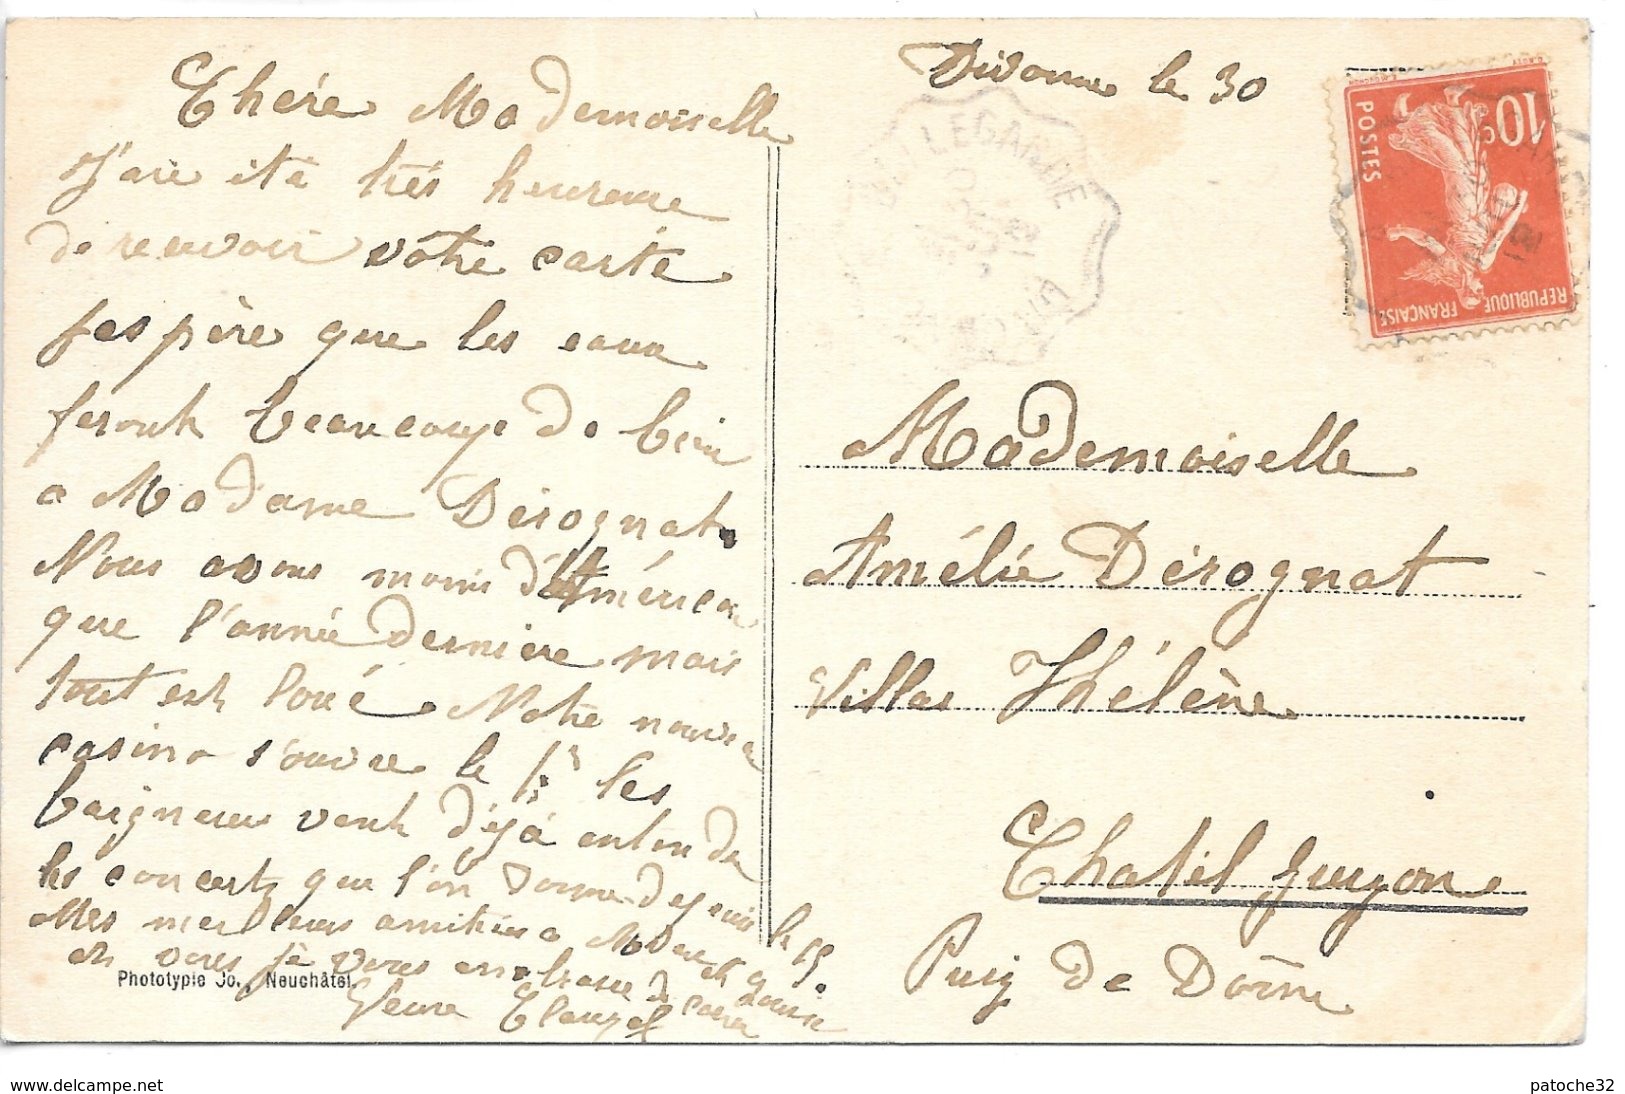 Divonne le 30
Chère Mademoiselle
J'aie été très heureuse
de recevoir votre carte
J'espère que les eaux
feront beaucoup de bien
a Madame Dérognat.
Nous avons moins d'Américain
que l'année dernière mais
tout est loué. Notre nouveau
casino s'ouvre le 1er les
baigneurs vont déjà entendre
les concerts que l'on donne depuis le 15.
Mes meilleurs amitiés a Mme
et vous je vous embrasse de
cœur
Phototypie Co., Neuchâtel.
BELLEGARDE
10c
POSTES
REPUBLIQUE
FRANÇAISE
Mademoiselle
Amélie Dérognat
Villas Thélène
Chatel Guyon
Puy de Dôme
www.delcampe.net
patoche32